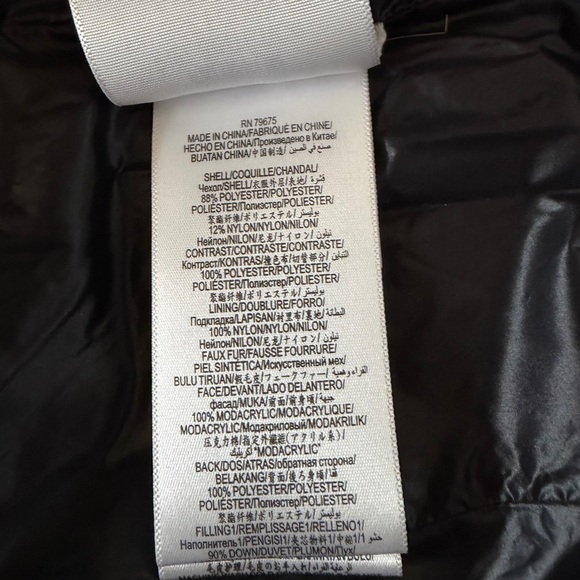 RN 79675
MADE IN CHINA/FABRIQUÉ EN CHINE/
HECHO EN CHINA/Произведено в Китае/
BUATAN CHINA/中国制造/صنع في الصين
SHELL/COQUILLE/CHANDAL/
Чехол/SHELL/衣服外层/表地/قشرة
88% POLYESTER/POLYESTER/
POLIÉSTER/Полиэстер/POLIESTER/
聚酯纤维/ポリエステル/بوليستر
12% NYLON/NYLON/NILON/
Нейлон/NILON/尼龙/ナイロン/نيلون
CONTRAST/CONTRASTE/CONTRASTE/
Контраст/KONTRAS/撞色布/切替部分/التباين
100% POLYESTER/POLYESTER/
POLIÉSTER/Полиэстер/POLIESTER/
聚酯纤维/ポリエステル/بوليستر
LINING/DOUBLURE/FORRO/
Подкладка/LAPISAN/衬里布/裏地/البطانة
100% NYLON/NYLON/NILON/
Нейлон/NILON/尼龙/ナイロン/نيلون
FAUX FUR/FAUSSE FOURRURE/
PIEL SINTÉTICA/Искусственный мех/
BULU TIRUAN/假毛皮/フェークファー/الفراء وهمية
FACE/DEVANT/LADO DELANTERO/
фасад/MUKA/前面/前身頃/جبهة
100% MODACRYLIC/MODACRYLIQUE/
MODACRÍLICO/Модакриловый/MODAKRILIK/
压克力棉/指定外繊維(アクリル系)/
"MODACRYLIC" اكريليك
BACK/DOS/ATRAS/обратная сторона/
BELAKANG/背面/後ろ身頃/
100% POLYESTER/POLYESTER/
POLIÉSTER/Полиэстер/POLIESTER/
聚酯纤维/ポリエステル/بوليستر
FILLING1/REMPLISSAGE1/RELLENO1/
Наполнитель1/PENGISI1/夹芯物料1/中綿1/حشو 1
90% DOWN/DUVET/PLUMON/Пух/